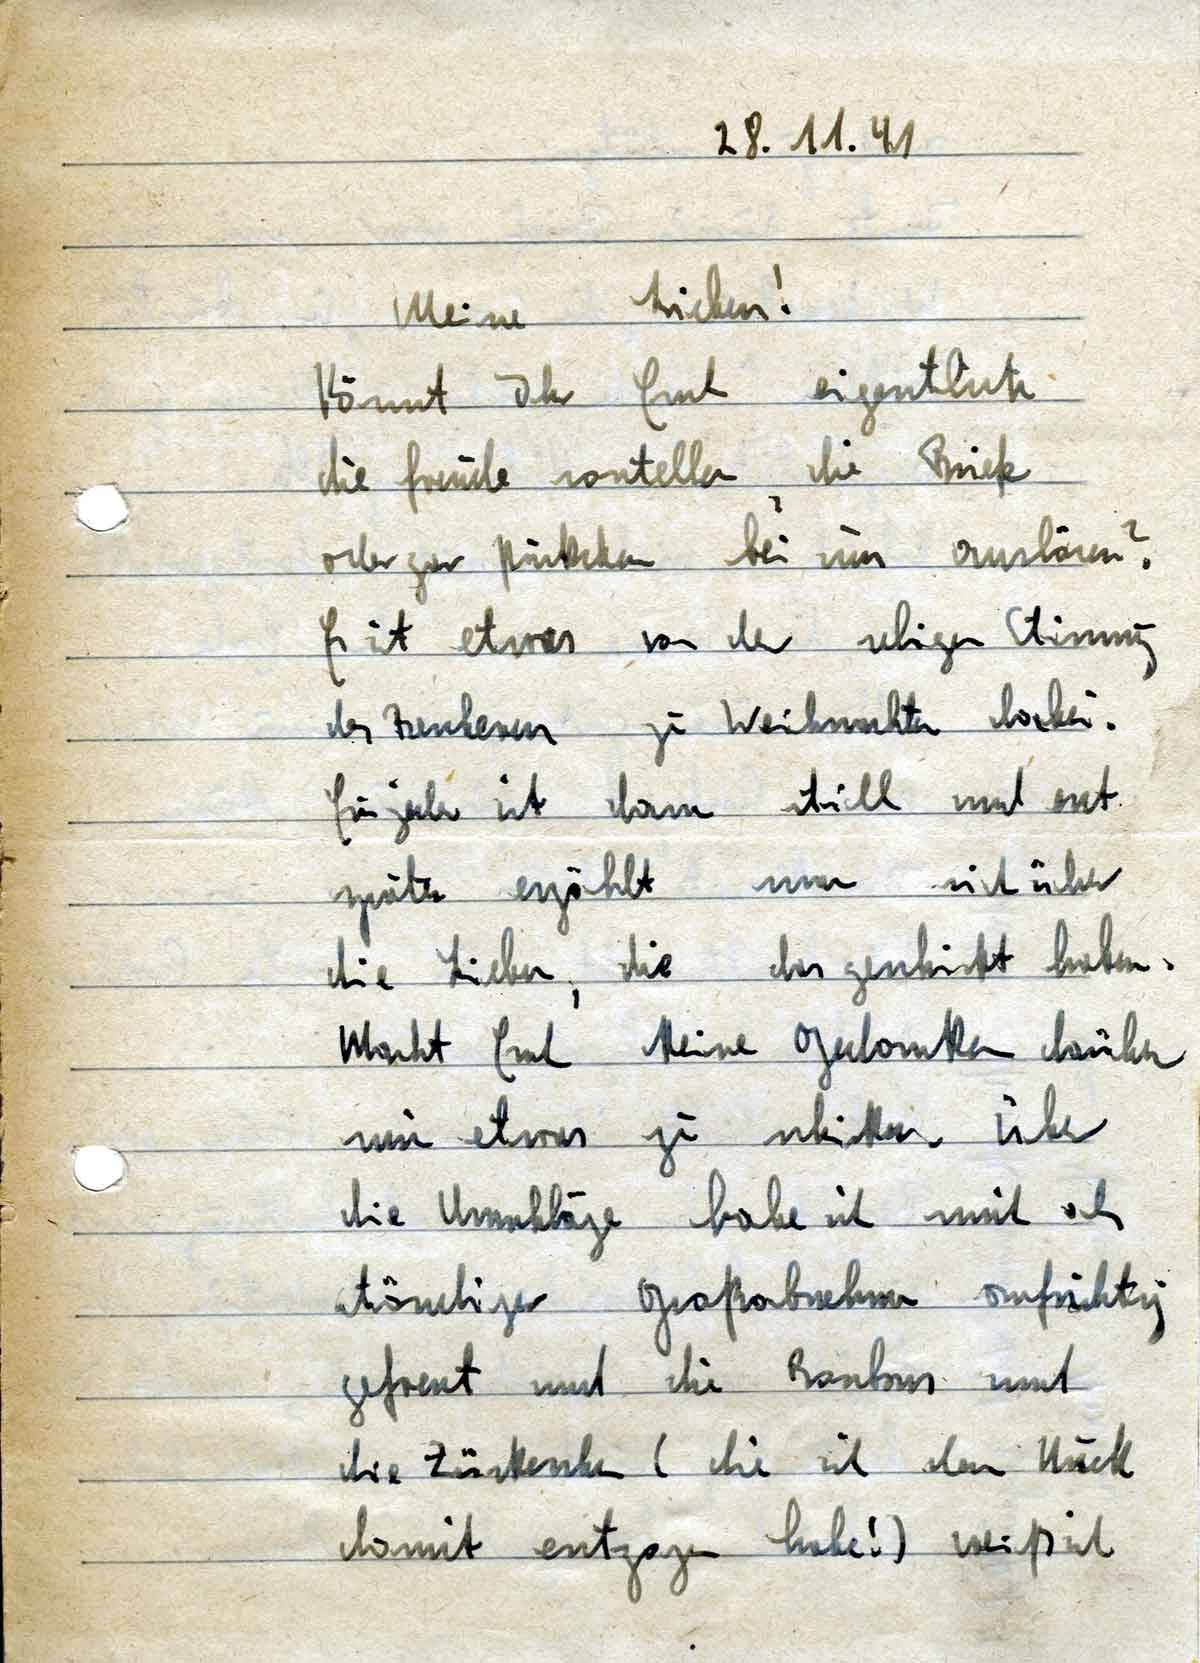 28. 11. 41
Meine Lieben!
Könnt Ihr Euch eigentlich
die Freude vorstellen, die Briefe
oder gar Päckchen bei uns auslösen?
Es ist etwas von der seligen Stimmung
des Bescherens zu Weihnachten dabei.
Ein jeder ist dann still und erst
später erzählt man sich über
die Lieben, die das geschickt haben.
Macht Euch keine Gedanken darüber
mir etwas zu schicken. Über
die Umschläge habe ich mich als
ständiger Großabnehmer aufrichtig
gefreut und die Bonbons und
die Zuckersachen (die ich den
damit entzogen habe!) weiß ich